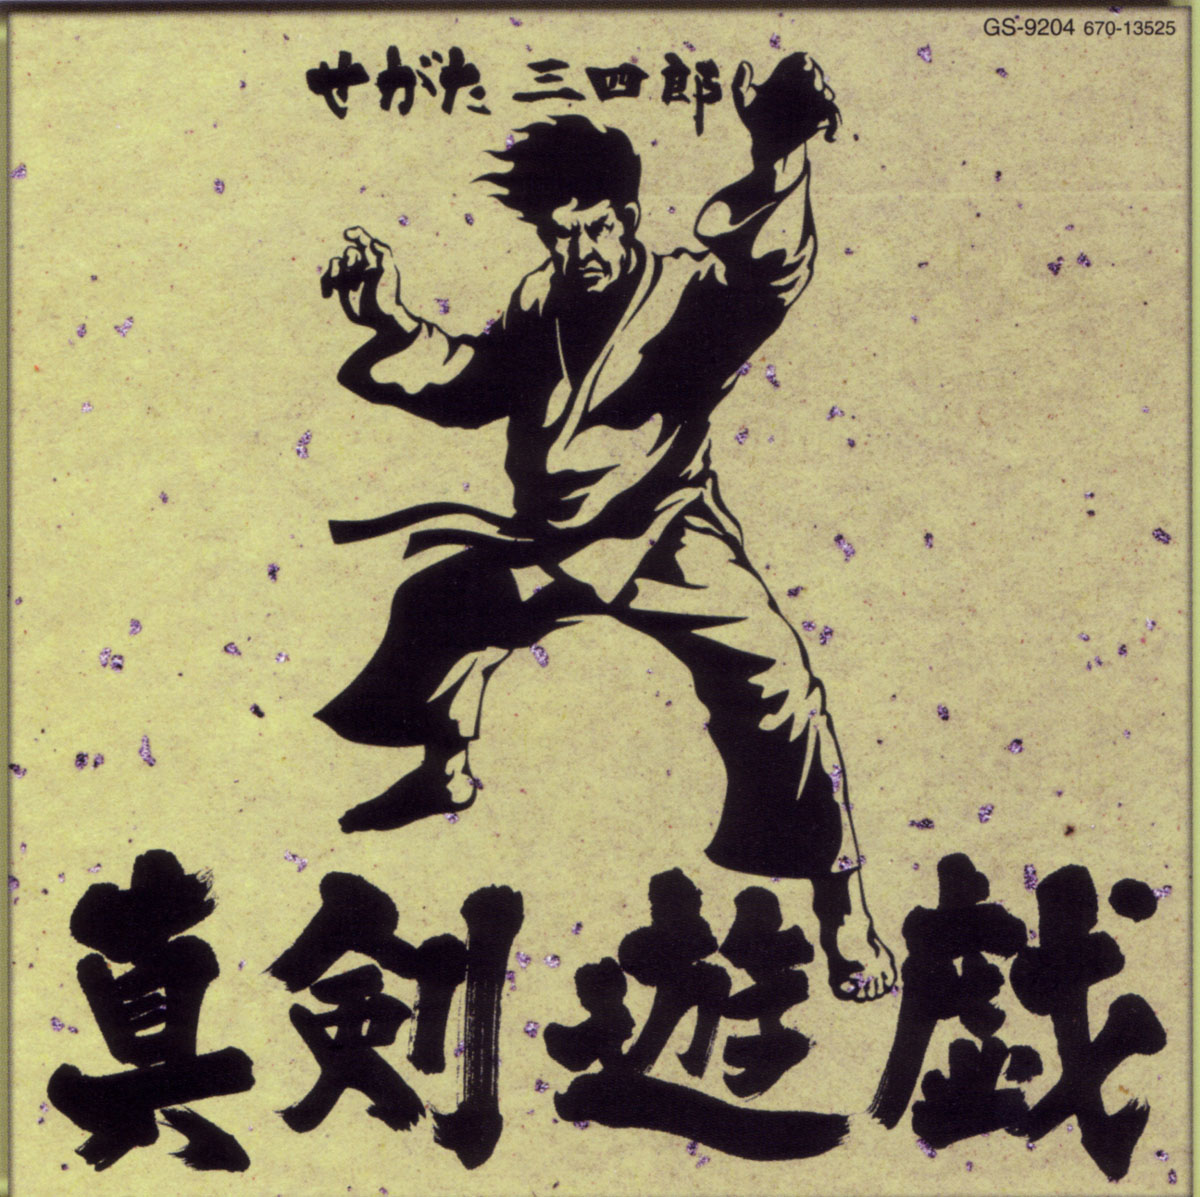 GS-9204 670-13525
せがた 三四郎
真剣遊戯